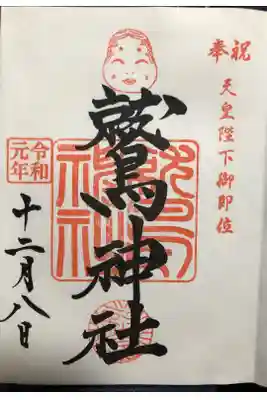 奉祝
天皇陛下御即位
鷲神社
令和
元年
十二月八日